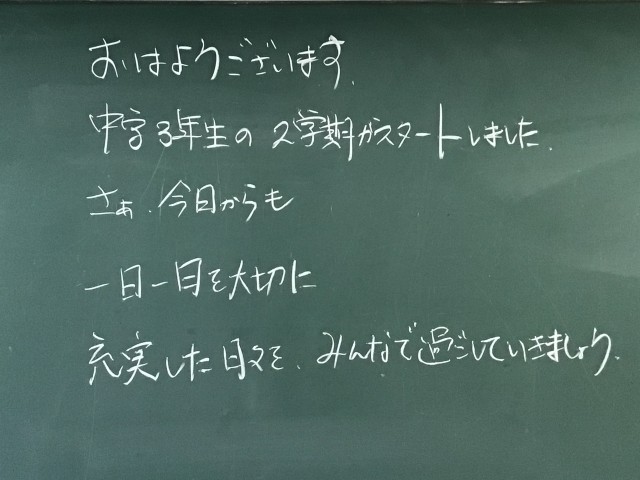 おはようございます.
中学3年生の2学期がスタートしました.
さぁ.今日からも
一日一日を大切に
充実した日々を、みんなで過ごしていきましょう.